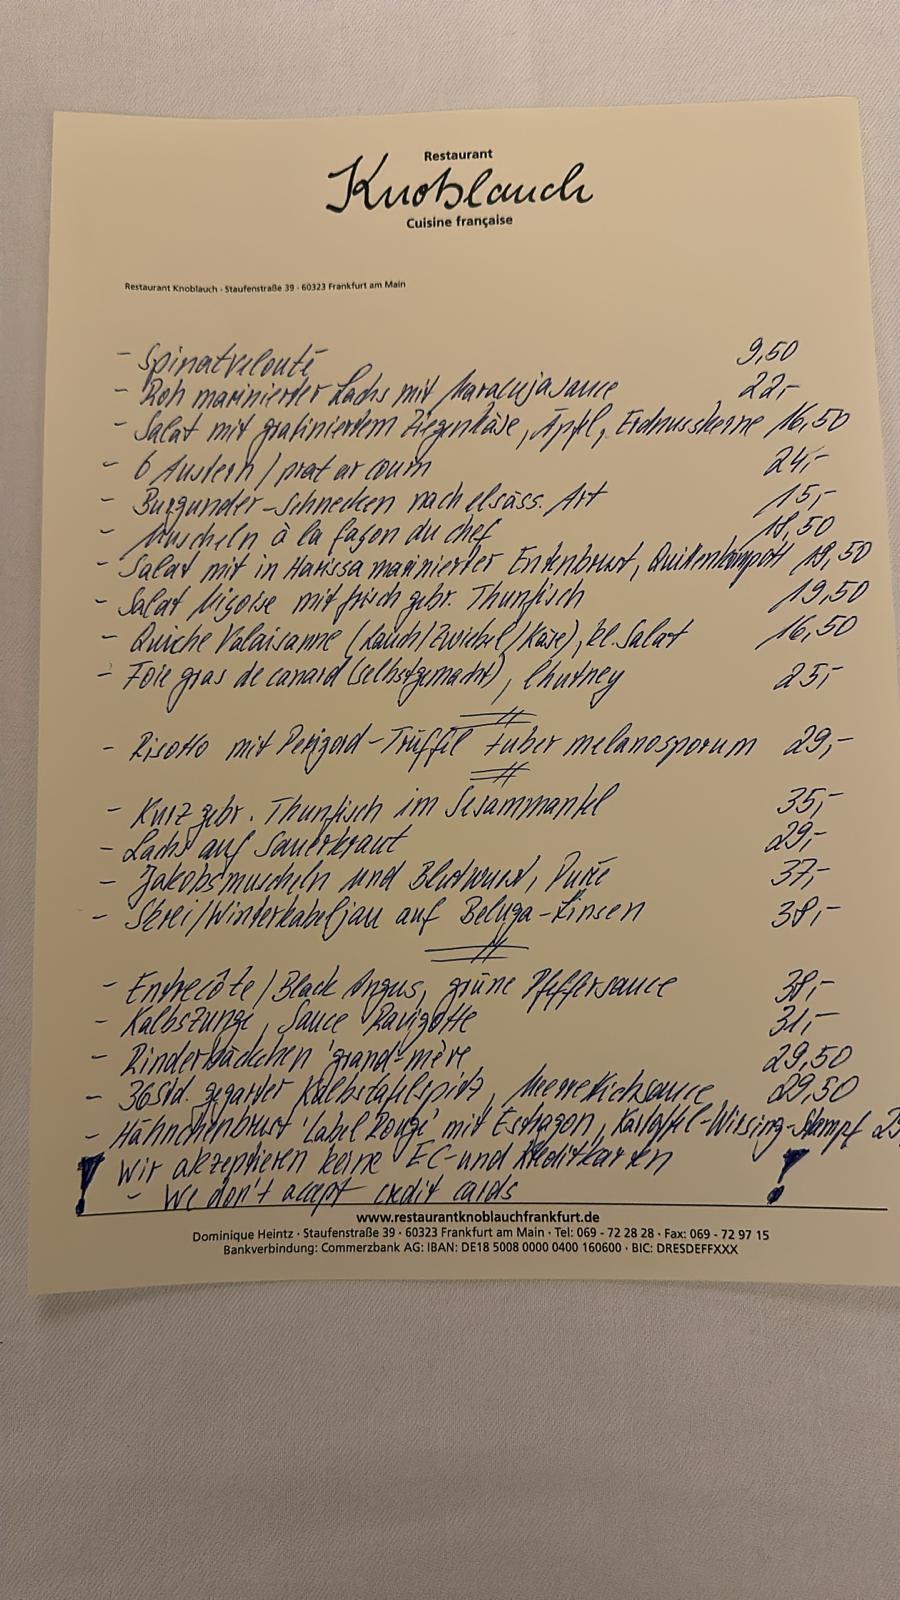 Restaurant
Knoblauch
Cuisine française
Restaurant Knoblauch · Staufenstraße 39 · 60323 Frankfurt am Main
- Spinatvelouté 9,50
- Roh marinierter Lachs mit Maracujasauce 22,-
- Salat mit gratiniertem Ziegenkäse, Äpfel, Erdnusskerne 16,50
- 6 Austern / prat ar coum 24,-
- Burgunder-Schnecken nach elsäss. Art 15,-
- Muscheln à la façon du chef 18,50
- Salat mit in Harissa marinierter Entenbrust, Quittenkompott 19,50
- Salat Niçoise mit frisch gebr. Thunfisch 19,50
- Quiche Valaisanne (Lauch/Zwiebel/Käse), kl. Salat 16,50
- Foie gras de canard (selbstgemacht), Chutney 25,-
- Risotto mit Perigord-Trüffel tuber melanosporum 29,-
- Kurz gebr. Thunfisch im Sesammantel 35,-
- Lachs auf Sauerkraut 29,-
- Jakobsmuscheln und Blutwurst, Purée 37,-
- Skrei/Winterkabeljau auf Beluga-Linsen 38,-
- Entrecôte / Black Angus, grüne Pfeffersauce 38,-
- Kalbszunge, Sauce Ravigotte 31,-
- Rinderbäckchen 'grand-mère 29,50
- 36Std. gegarter Kalbstafelspitz, Meerrettichsauce 29,50
- Hähnchenbrust 'Label Rouge' mit Estragon, Kartoffel-Wirsing-Stampf
! Wir akzeptieren keine EC-und Kreditkarten !
- We don't accept credit cards
www.restaurantknoblauchfrankfurt.de
Dominique Heintz · Staufenstraße 39 · 60323 Frankfurt am Main · Tel: 069 - 72 28 28 · Fax: 069 - 72 97 15
Bankverbindung: Commerzbank AG: IBAN: DE18 5008 0000 0400 160600 · BIC: DRESDEFFXXX